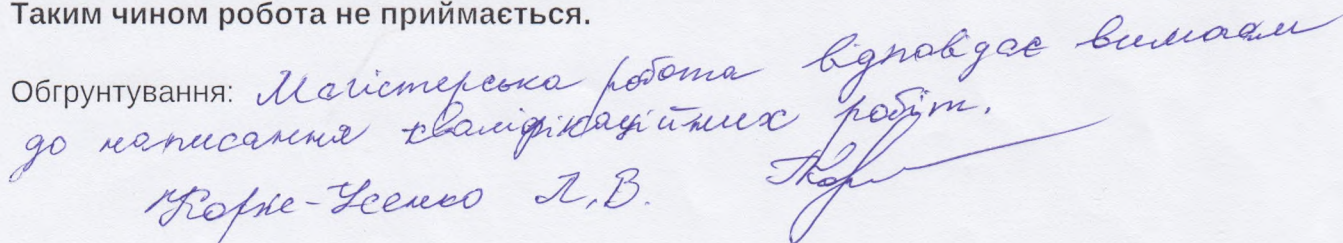 Таким чином робота не приймається.
Обгрунтування: Магістерська робота відповідає вимогам
до написання кваліфікаційних робіт.
Корж-Усенко Л.В.